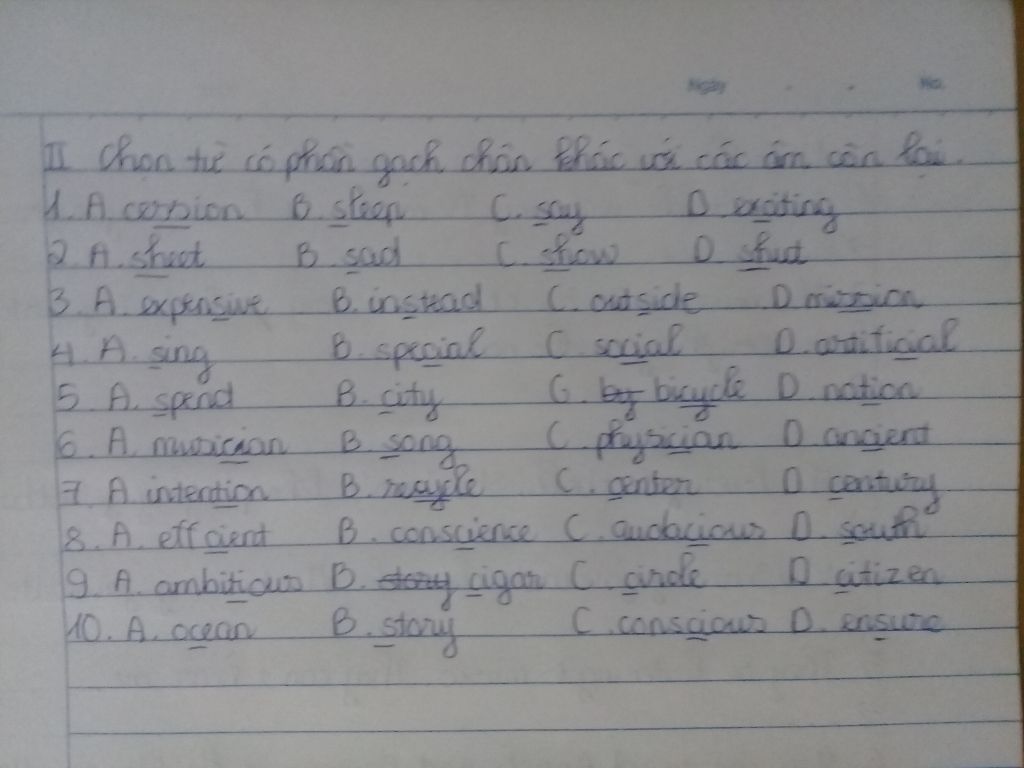 Ngày No.
II Chọn từ có phần gạch chân khác với các âm còn lại.
1. A. cession B. sleep C. say D. exciting
2. A. sheet B. sad C. show D. shut
3. A. expensive B. instead C. outside D mission
4. A. sing B. special C. social D. artificial
5. A. spend B. city C. by bicycle D. nation
6. A. musician B. song C. physician D. ancient
7. A intention B. recycle C. center D century
8. A. efficient B. conscience C. audacious D. south
9. A. ambitious B. story cigar C. circle D citizen
10. A. ocean B. story C. conscious D. ensure